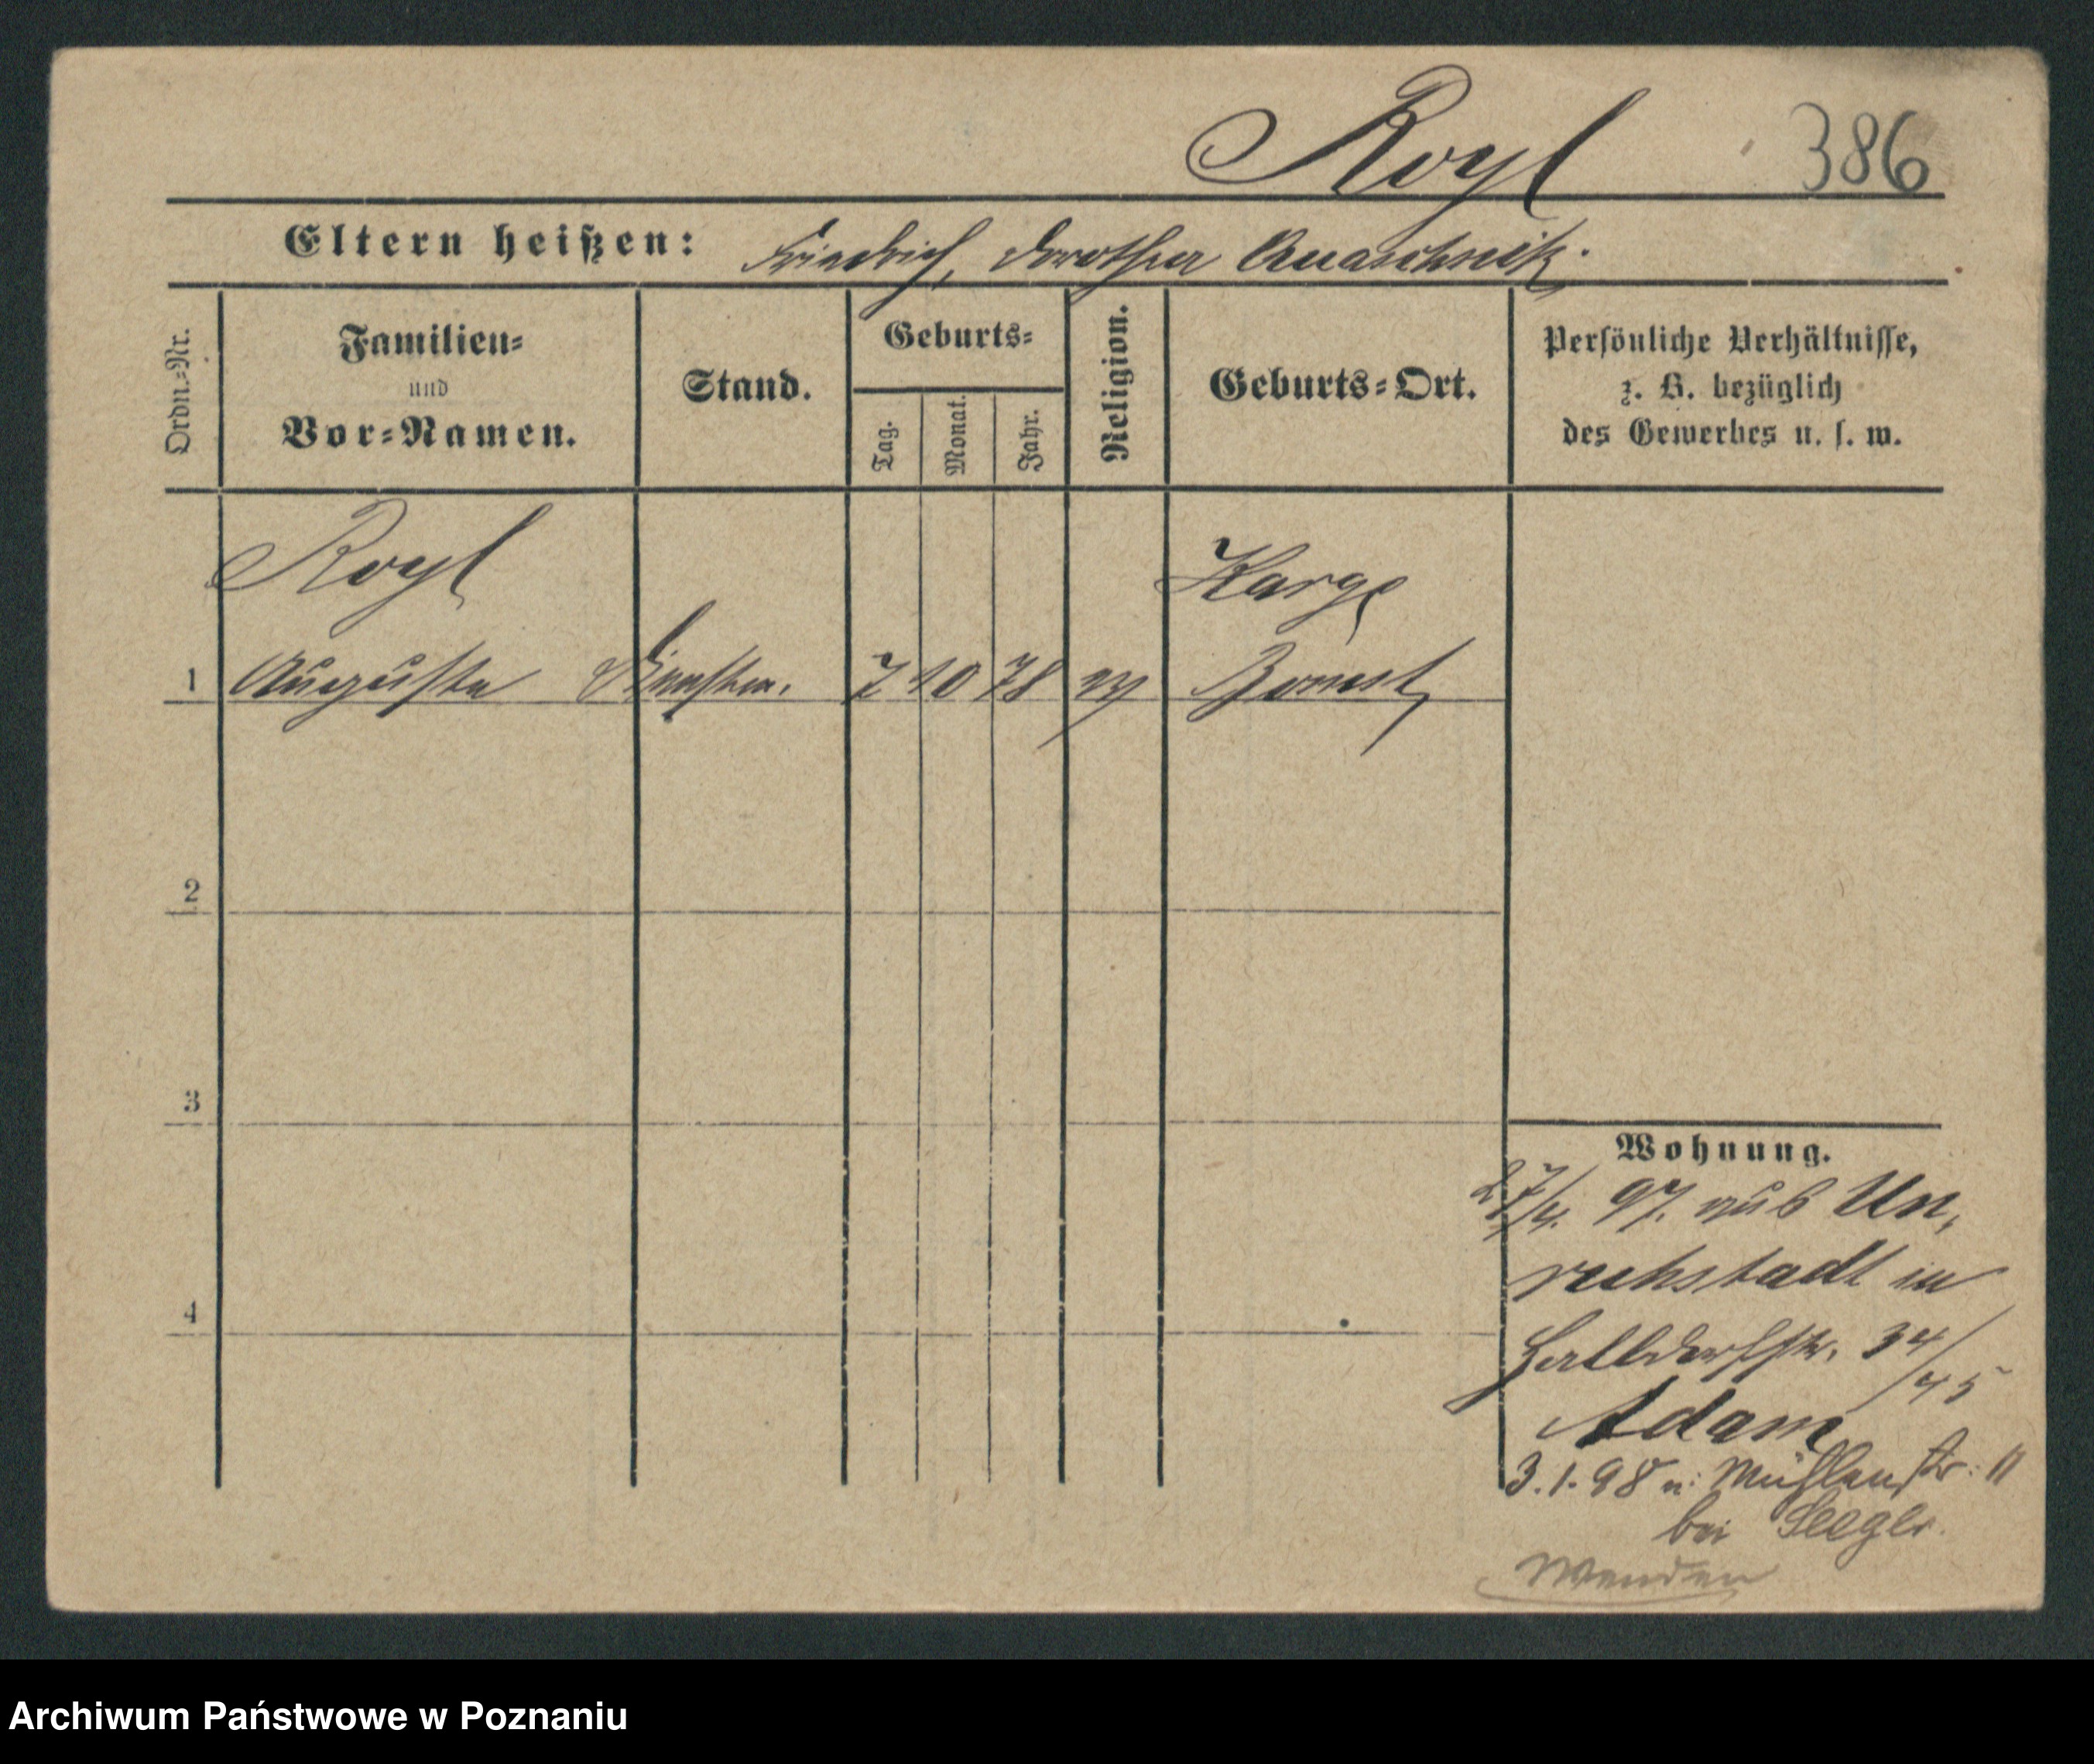 Royl 386
Eltern heißen: Friedrich, Dorothea
Ordn.-Nr.
Familien-
und
Vor-Namen.
Stand.
Geburts-
Tag.
Monat.
Jahr.
Religion.
Geburts-Ort.
Persönliche Verhältnisse,
z. B. bezüglich
des Gewerbes u. s. w.
Royl Karge
1 Auguste 7 10 78 ev Bomst
2
3
4
Wohnung.
27/4. 97. aus Un,
ruhstadt in
Halldorfstr. 34/
/45
Adam
3.1.98 n. Mühlenstr. 11
bei Seeger
Wenden
Archiwum Państwowe w Poznaniu